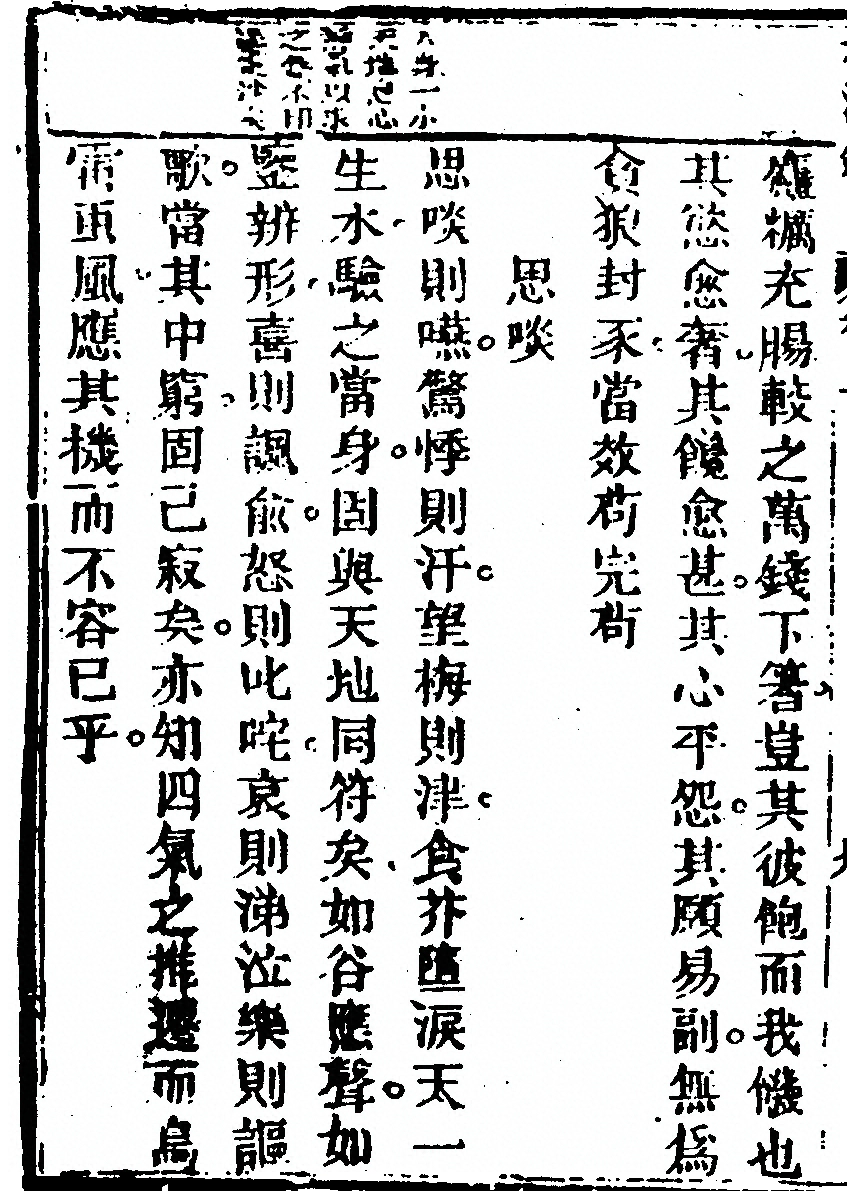 人身一小
天地也心
之不卽
糲充腸較之萬錢下箸豈其彼飽而我饑也
其慾愈奢其饞愈甚其心平怨其願易副無爲
貪狼封豕當效苟完苟
思啖
思啖則嚥驚悸則汗望梅則津食芥墮淚天一
生水驗之當身固與天地同符矣如谷應聲如
鑒辨形喜則諷俞怒則叱咤哀則涕泣樂則謳
歌當其中窮固已寂矣亦知四氣之推遷而鳥
雷重風應其機而不容已乎